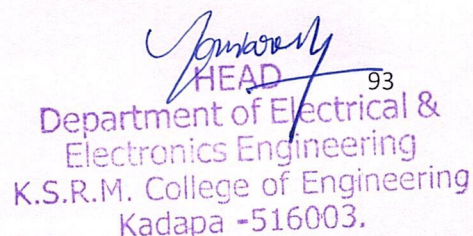 HEAD
93
Department of Electrical &
Electronics Engineering
K.S.R.M. College of Engineering
Kadapa -516003.